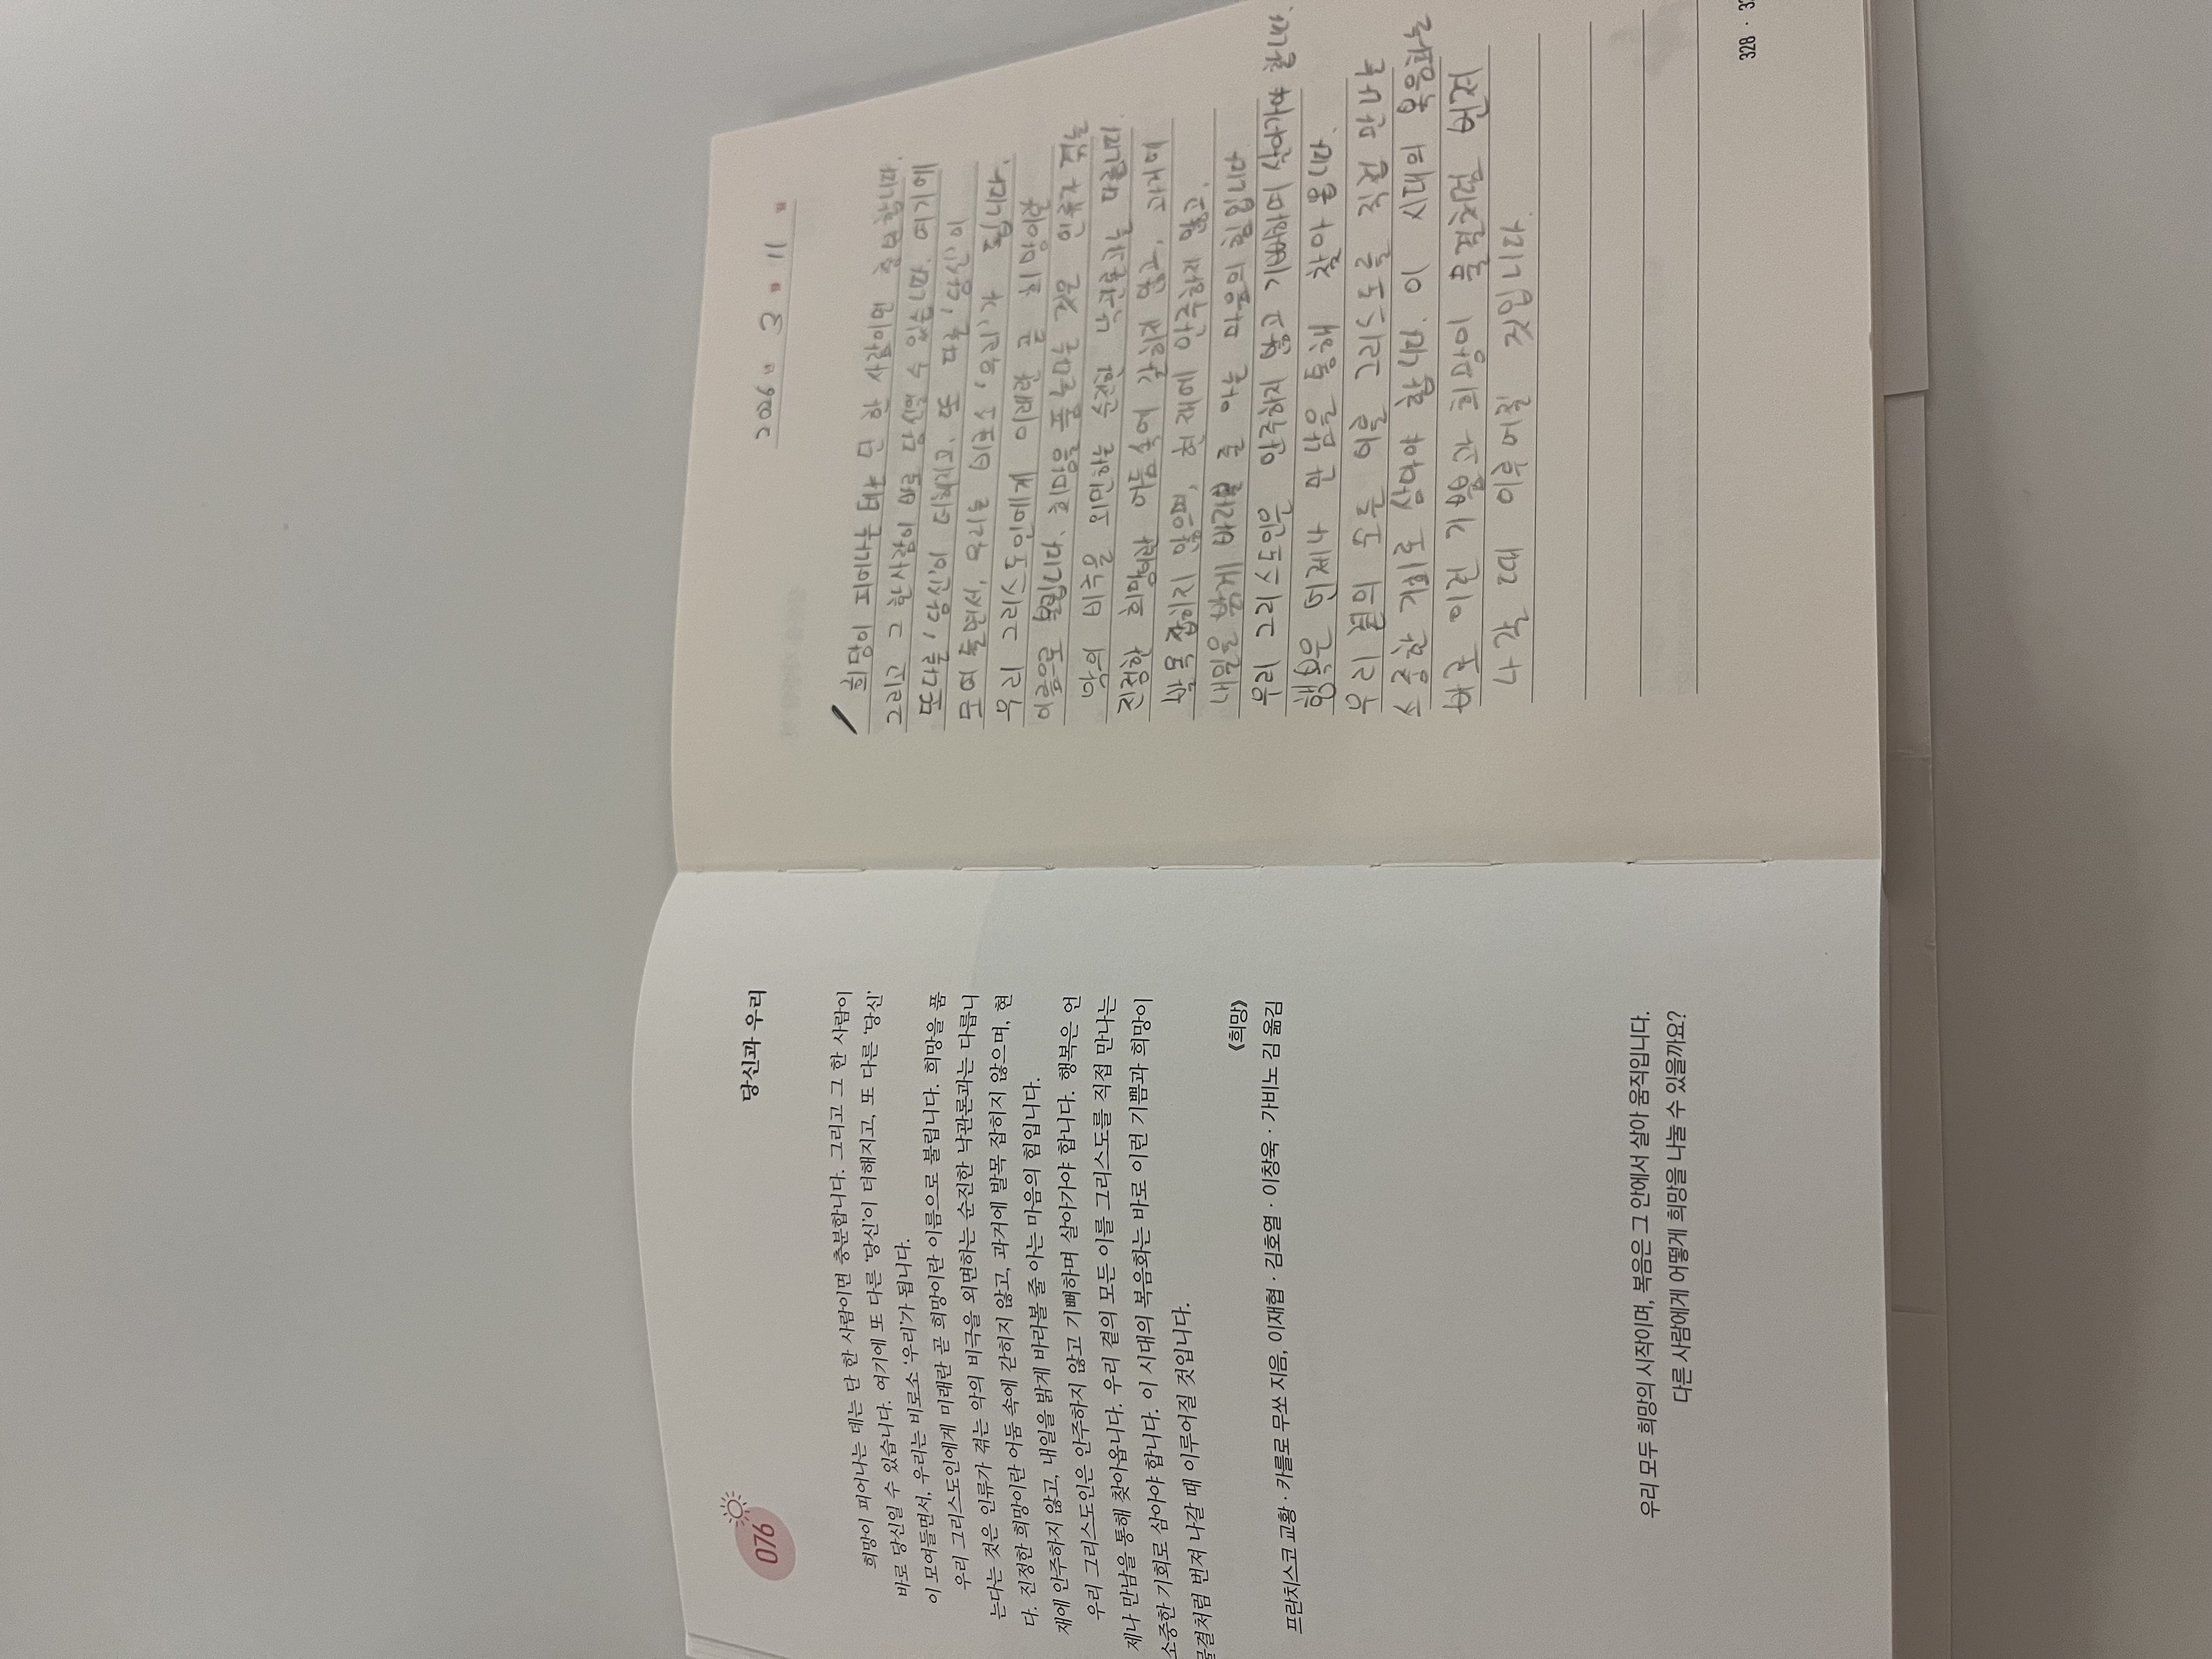 076
당신과 우리
희망이 피어나는 데는 단 한 사람이면 충분합니다. 그리고 그 한 사람이
바로 당신일 수 있습니다. 여기에 또 다른 ‘당신’이 더해지고, 또 다른 ‘당신’
이 모여들면서, 우리는 비로소 ‘우리’가 됩니다.
우리 그리스도인에게 미래란 곧 희망이란 이름으로 불립니다. 희망을 품
는다는 것은 인류가 겪는 악의 비극을 외면하는 순진한 낙관론과는 다릅니
다. 진정한 희망이란 어둠 속에 갇히지 않고, 과거에 발목 잡히지 않으며, 현
재에 안주하지 않고, 내일을 밝게 바라볼 줄 아는 마음의 힘입니다.
우리 그리스도인은 안주하지 않고 기뻐하며 살아가야 합니다. 행복은 언
제나 만남을 통해 찾아옵니다. 우리 곁의 모든 이를 그리스도를 직접 만나는
소중한 기회로 삼아야 합니다. 이 시대의 복음화는 바로 이런 기쁨과 희망이
물결처럼 번져 나갈 때 이루어질 것입니다.
《희망》
프란치스코 교황 · 카를로 무쏘 지음, 이재협 · 김호열 · 이창욱 · 가비노 김 옮김
우리 모두 희망의 시작이며, 복음은 그 안에서 살아 움직입니다.
다른 사람에게 어떻게 희망을 나눌 수 있을까요?
2026 3 11
희망이 피어나는 데는 단 한 사람이면 충분합니다.
그리고 그 한사람이 바로 당신일 수 있습니다. 여기에
또다른 '당신'이 더해지고, 또 다른 '당신'이
모여들면서, 우리는 비로소 '우리'가 됩니다.
우리 그리스도인에게 미래란 곧 희망이란
이름으로 불립니다. 희망을 품는다는 것은 인류가 겪는
악의 비극을 외면하는 순진한 낙관론과는 다릅니다.
진정한 희망이란 어둠속에 갇히지 않고, 과거에
발목 잡히지 않으며, 현재에 안주하지 않고,
내일을 밝게 바라볼 줄 아는 마음의 힘입니다.
우리 그리스도인은 안주하지 않고 기뻐하며 살아가야 합니다.
행복은 언제나 만남을 통해 찾아 옵니다.
우리 곁의 모든 이를 그리스도를 직접 만나는
소중한 기회로 삼아야 합니다. 이 시대의 복음화는
바로 이런 기쁨과 희망이 물결처럼 번져
나갈 때 이루어질 것입니다.
328 ·